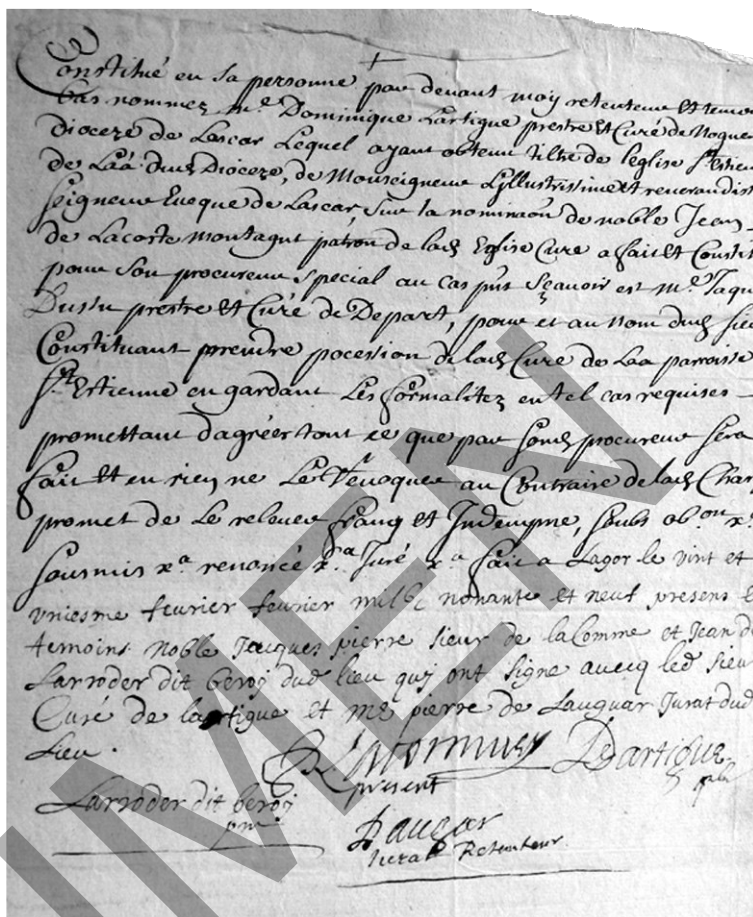 Constitué en sa personne par devant moy retenteur et temoi
bas nommez, Me. Dominique Lartigue prestre et Curé de Nogue
dioceze de Lascar Lequel ayant obtenu tiltre de l'eglise St. Estien
de Laà dud Dioceze, de Monseigneur L'Illustrissime et reverandiss
seigneur Eveque de Lascar, sur la nominaon de noble Jean
de Lacoste montagut patron de lad Eglise Cure a fait et Constit
pour son procureur special au cas pnt sçavoir est Me. Jaqu
prestre et Curé de Depart, pour et au nom dud sieu
Constituant prendre pocession de lad Cure de Laa parroisse
St. Estienne en gardant Les formalitez en tel cas requises
promettant d'agréer tout ce que par sond procureur sera
fait et en rien ne Le revoquer au Contraire de lad Char
promet de Le relever franq et Indempne, soubs ob.on xa
soumis xa renoncé xa Juré xa fait a Lagor le vint et
uniesme feurier feurier mil 6c nonante et neuf presens e
temoins noble Jacques pierre sieur de la Comme et Jean d
Larroder dit beroj dud lieu quj ont signe auecq led sieur
Curé de lartigue et me pierre de Lauguar Jurat dud
Lieu.
Delartigue
present
Larroder dit beroj
pnt
Laugar
Jurat Retenteur
IMEN